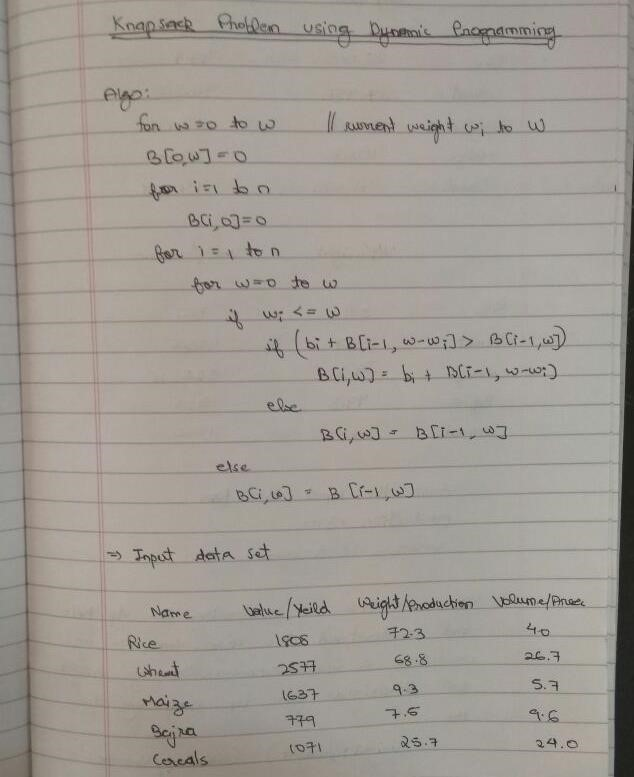 Knapsack Problem using Dynamic Programming
Algo:
for w=0 to w // current weight wi to W
B[0,w]=0
for i=1 to n
B[i,0]=0
for i=1 to n
for w=0 to w
if wi <= w
if (bi + B[i-1, w-wi] > B[i-1,w])
B[i,w] = bi + B[i-1, w-wi)
else
B[i,w] = B[i-1, w]
else
B[i,w] = B [i-1,w]
=> Input data set
Name Value/Yeild Weight/Production Volume/Area
Rice 1808 72.3 40
Wheat 2577 68.8 26.7
Maize 1637 9.3 5.7
Bajra 779 7.5 9.6
Cereals 1071 25.7 24.0